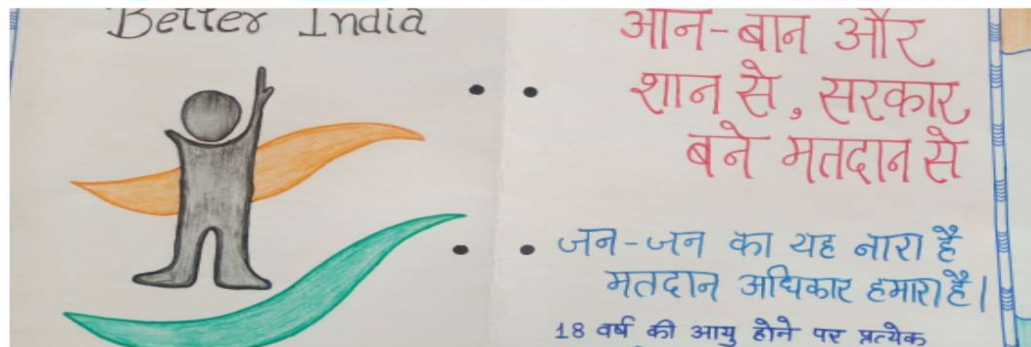 Better India
आन-बान और
शान से, सरकार
बने मतदान से
जन-जन का यह नारा है
मतदान अधिकार हमारा है।
18 वर्ष की आयु होने पर प्रत्येक